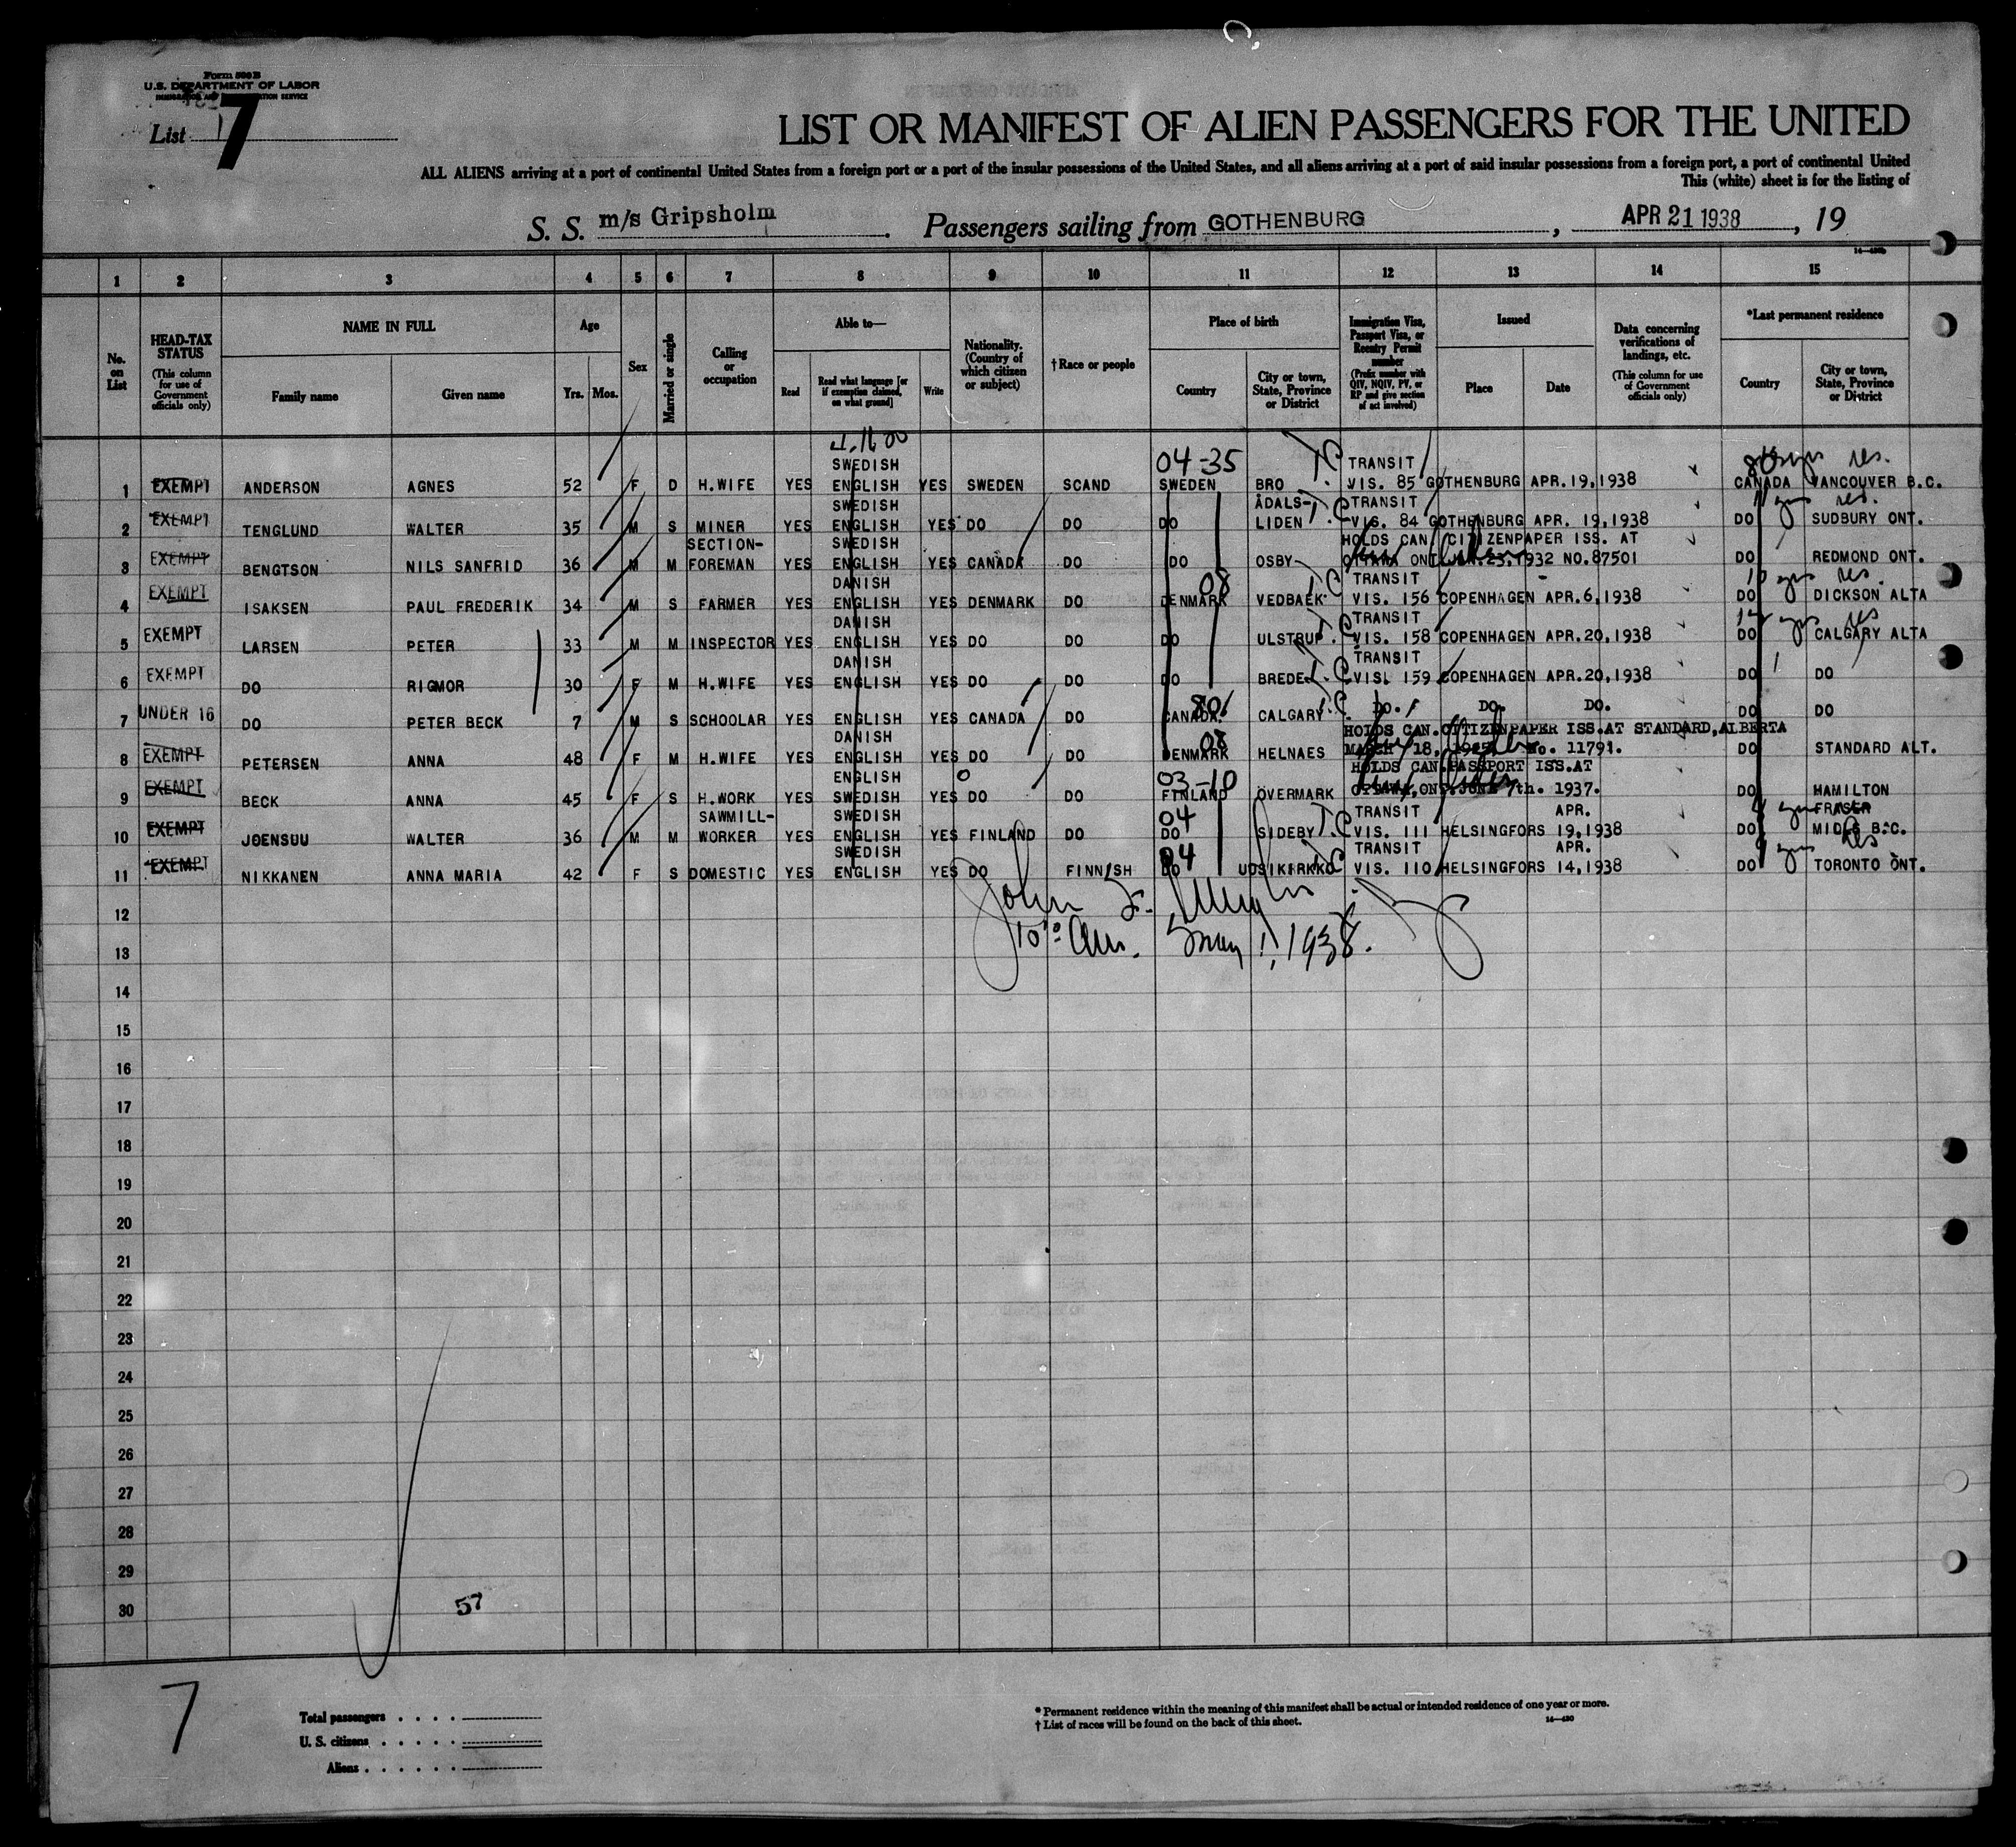 Form 500 B
U.S. DEPARTMENT OF LABOR
List 7
LIST OR MANIFEST OF ALIEN PASSENGERS FOR THE UNITED
ALL ALIENS arriving at a port of continental United States from a foreign port or a port of the insular possessions of the United States, and all aliens arriving at a port of said insular possessions from a foreign port, a port of continental United
This (white) sheet is for the listing of
S. S. m/s Gripsholm . Passengers sailing from GOTHENBURG , APR 21 1938 , 19
1 2 3 4 5 6 7 8 9 10 11 12 13 14 15
No. on List
HEAD-TAX STATUS (This column for use of Government officials only)
NAME IN FULL
Family name
Given name
Age
Yrs. Mos.
Sex
Married or single
Calling or occupation
Able to—
Read
Read what language [or if exemption claimed, on what ground]
Write
Nationality. (Country of which citizen or subject)
†Race or people
Place of birth
Country
City or town, State, Province or District
Immigration Visa, Passport Visa, or Reentry Permit number (Prefix number with QIV, NQIV, PV, or RP and give section of act involved)
Issued
Place
Date
Data concerning verifications of landings, etc. (This column for use of Government officials only)
*Last permanent residence
Country
City or town, State, Province or District
04-35 res.
SWEDISH TRANSIT
1 EXEMPT ANDERSON AGNES 52 F D H.WIFE YES ENGLISH YES SWEDEN SCAND SWEDEN BRO VIS. 85 GOTHENBURG APR.19,1938 CANADA VANCOUVER B.C.
SWEDISH ÅDALS- TRANSIT yrs res.
2 EXEMPT TENGLUND WALTER 35 M S MINER YES ENGLISH YES DO DO DO LIDEN VIS. 84 GOTHENBURG APR. 19,1938 DO SUDBURY ONT.
SECTION- SWEDISH HOLDS CAN CITIZENPAPER ISS. AT
3 EXEMPT BENGTSON NILS SANFRID 36 M M FOREMAN YES ENGLISH YES CANADA DO DO OSBY OTTAWA ONT JAN.23,1932 NO.87501 DO REDMOND ONT.
DANISH 08 TRANSIT 10 yrs res.
4 EXEMPT ISAKSEN PAUL FREDERIK 34 M S FARMER YES ENGLISH YES DENMARK DO DENMARK VEDBAEK VIS. 156 COPENHAGEN APR.6,1938 DO DICKSON ALTA
DANISH TRANSIT yrs res
5 EXEMPT LARSEN PETER 33 M M INSPECTOR YES ENGLISH YES DO DO DO ULSTRUP VIS. 158 COPENHAGEN APR.20,1938 DO CALGARY ALTA
DANISH TRANSIT
6 EXEMPT DO RIGMOR 30 F M H.WIFE YES ENGLISH YES DO DO DO BREDE VISL 159 COPENHAGEN APR.20,1938 DO DO
7 UNDER 16 DO PETER BECK 7 M S SCHOOLAR YES ENGLISH YES CANADA DO CANADA. CALGARY DO. DO. DO. DO DO
DANISH 08 HOLDS CAN.CITIZENPAPER ISS.AT STANDARD,ALBERTA
8 EXEMPT PETERSEN ANNA 48 F M H.WIFE YES ENGLISH YES DO DO DENMARK HELNAES MARCH 18, No. 11791. DO STANDARD ALT.
ENGLISH 03-10 HOLDS CAN.PASSPORT ISS.AT
9 EXEMPT BECK ANNA 45 F S H.WORK YES SWEDISH YES DO DO FINLAND ÖVERMARK OTTAWA,ONT.JUNE 7th. 1937. DO HAMILTON
SAWMILL- SWEDISH 04 TRANSIT APR. yrs FRASER
10 EXEMPT JOENSUU WALTER 36 M M WORKER YES ENGLISH YES FINLAND DO DO SIDEBY VIS. 111 HELSINGFORS 19,1938 DO MIDLS B.C.
SWEDISH 04 TRANSIT APR. 9 yrs res
11 EXEMPT NIKKANEN ANNA MARIA 42 F S DOMESTIC YES ENGLISH YES DO FINNISH DO UUSIKIRKKO VIS. 110 HELSINGFORS 14,1938 DO TORONTO ONT.
12 John F.
13 May 1, 1938.
14
15
16
17
18
19
20
21
22
23
24
25
26
27
28
29
30
57
7
Total passengers . . . .
U. S. citizens . . . . .
Aliens . . . . . .
* Permanent residence within the meaning of this manifest shall be actual or intended residence of one year or more.
† List of races will be found on the back of this sheet.
14—430